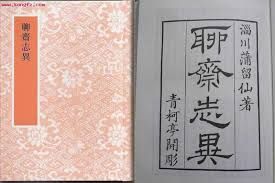 www.kongfz.com
聊齋志異
淄川蒲留仙著
聊齋志異
青柯亭開雕